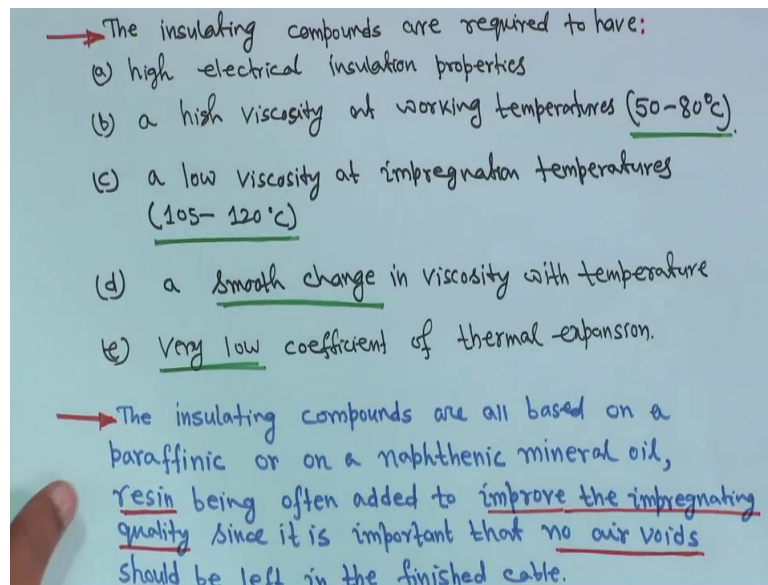 The insulating compounds are required to have:
(a) high electrical insulation properties
(b) a high viscosity at working temperatures (50-80°C).
(c) a low viscosity at impregnation temperatures
(105- 120°C)
(d) a smooth change in viscosity with temperature
(e) Very low coefficient of thermal expansion.
The insulating compounds are all based on a
paraffinic or on a naphthenic mineral oil,
resin being often added to improve the impregnating
quality since it is important that no air voids
should be left in the finished cable.